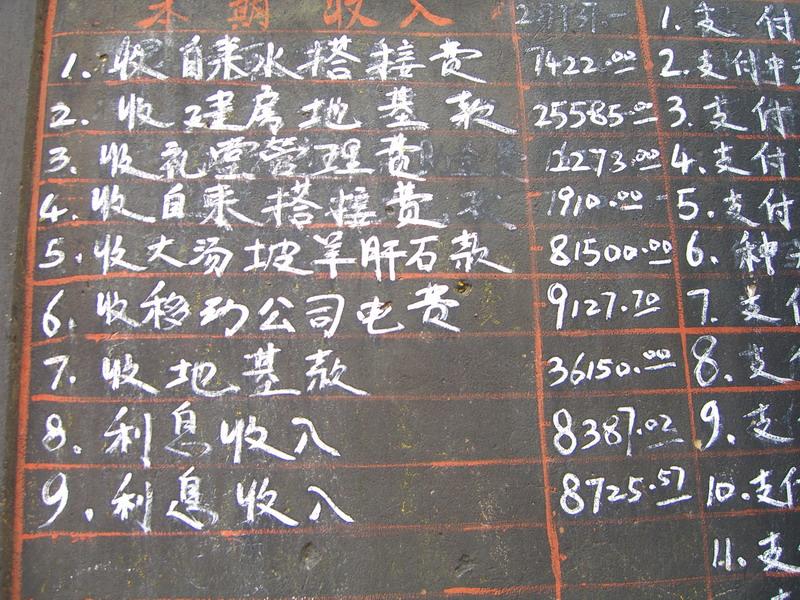 本期收入 1. 支付
1. 收自来水搭接费 7422.00 2. 支付中
2. 收建房地基款 25585.00 3. 支付
3. 收礼堂管理费 1273.00 4. 支付
4. 收自来搭接费 1910.00 5. 支付
5. 收大汤坡羊肝石款 81500.00 6. 种
6. 收移动公司电费 9127.70 7. 支付
7. 收地基款 36150.00 8. 支
8. 利息收入 8387.02 9. 支
9. 利息收入 8725.57 10. 支付
11. 支